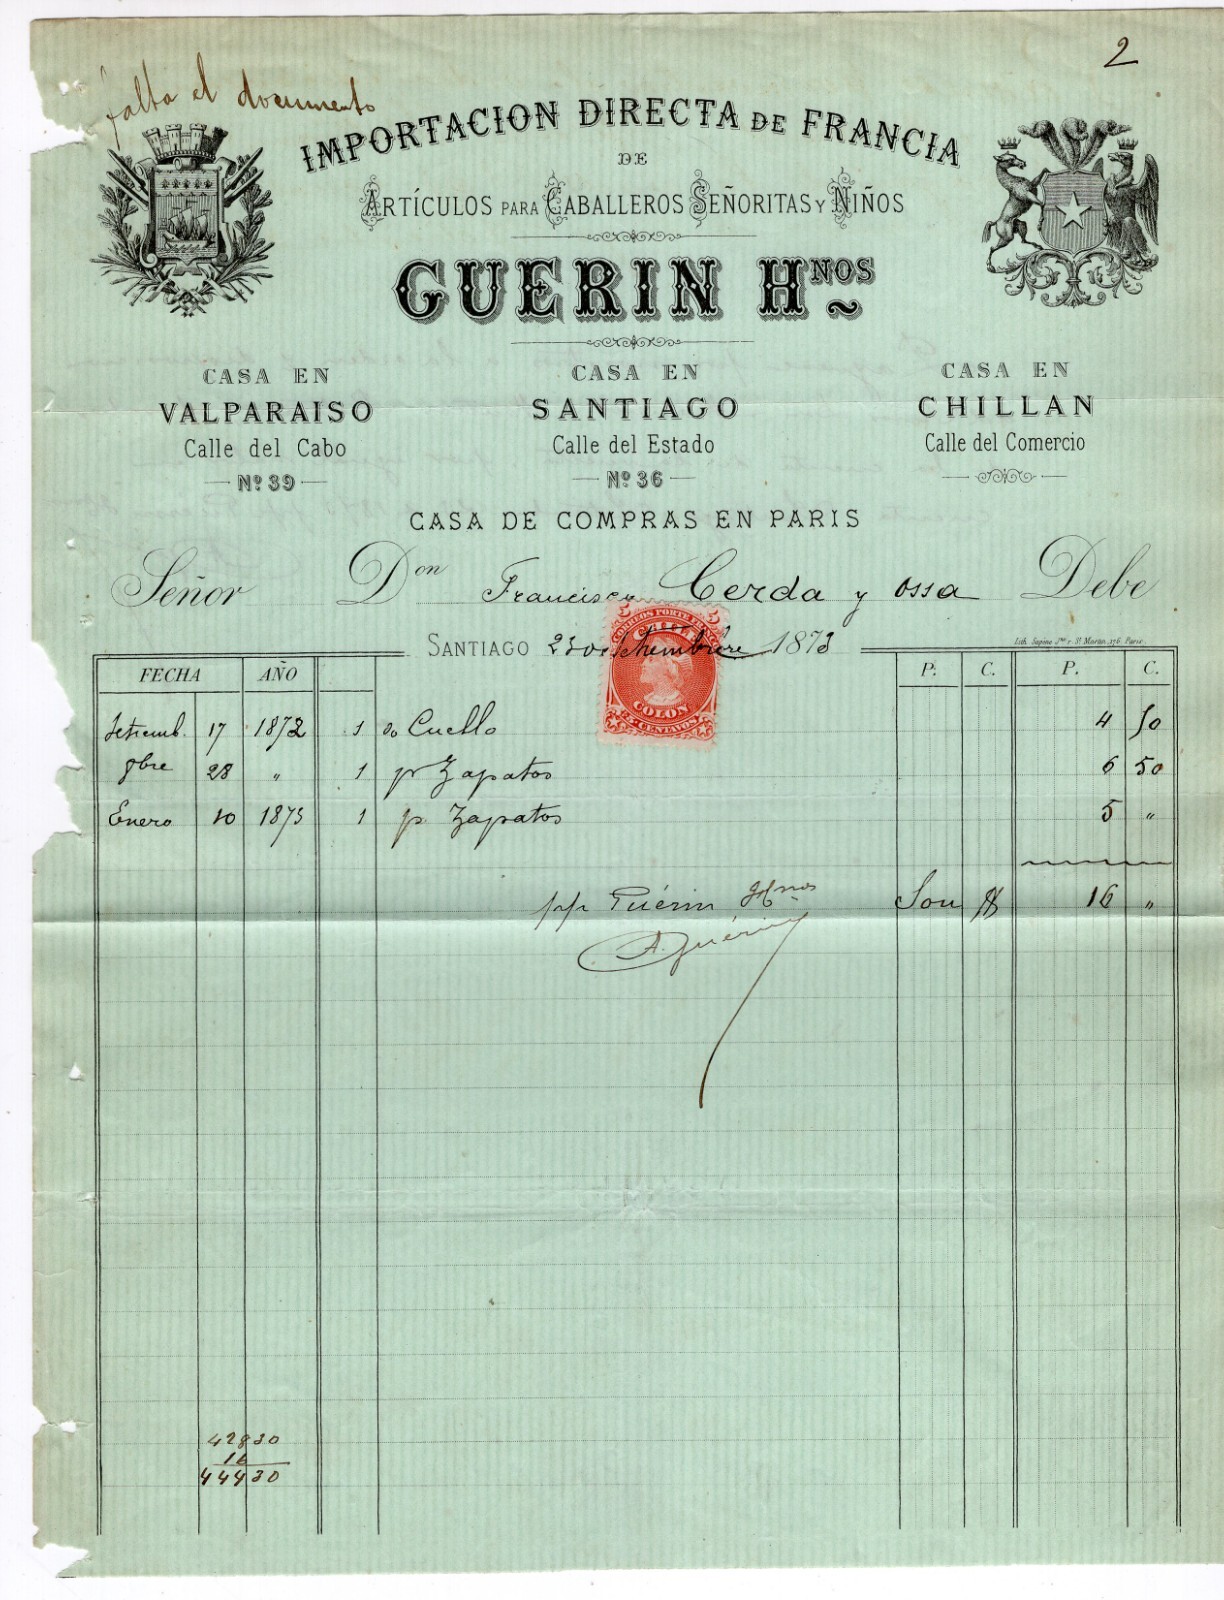 2
falta el documento
IMPORTACION DIRECTA DE FRANCIA
DE
ARTÍCULOS PARA CABALLEROS SEÑORITAS Y NIÑOS
GUERIN HNOS
CASA EN VALPARAISO
Calle del Cabo
Nº 39
CASA EN SANTIAGO
Calle del Estado
Nº 36
CASA EN CHILLAN
Calle del Comercio
CASA DE COMPRAS EN PARIS
Señor Don Francisco Cerda y Ossa Debe
SANTIAGO 23 de Setiembre 1873
CORREOS PORTE FRANCO
CHILE
5 5
COLON
CENTAVOS
FECHA AÑO P. C. P. C.
Setiemb. 17 1872 1 Cuello 4 50
9bre 28 " 1 pr Zapatos 6 50
Enero 10 1873 1 p. Zapatos 5 "
p/p Guérin Hnos Son $ 16 "
A. Guérin
42830
16
44430